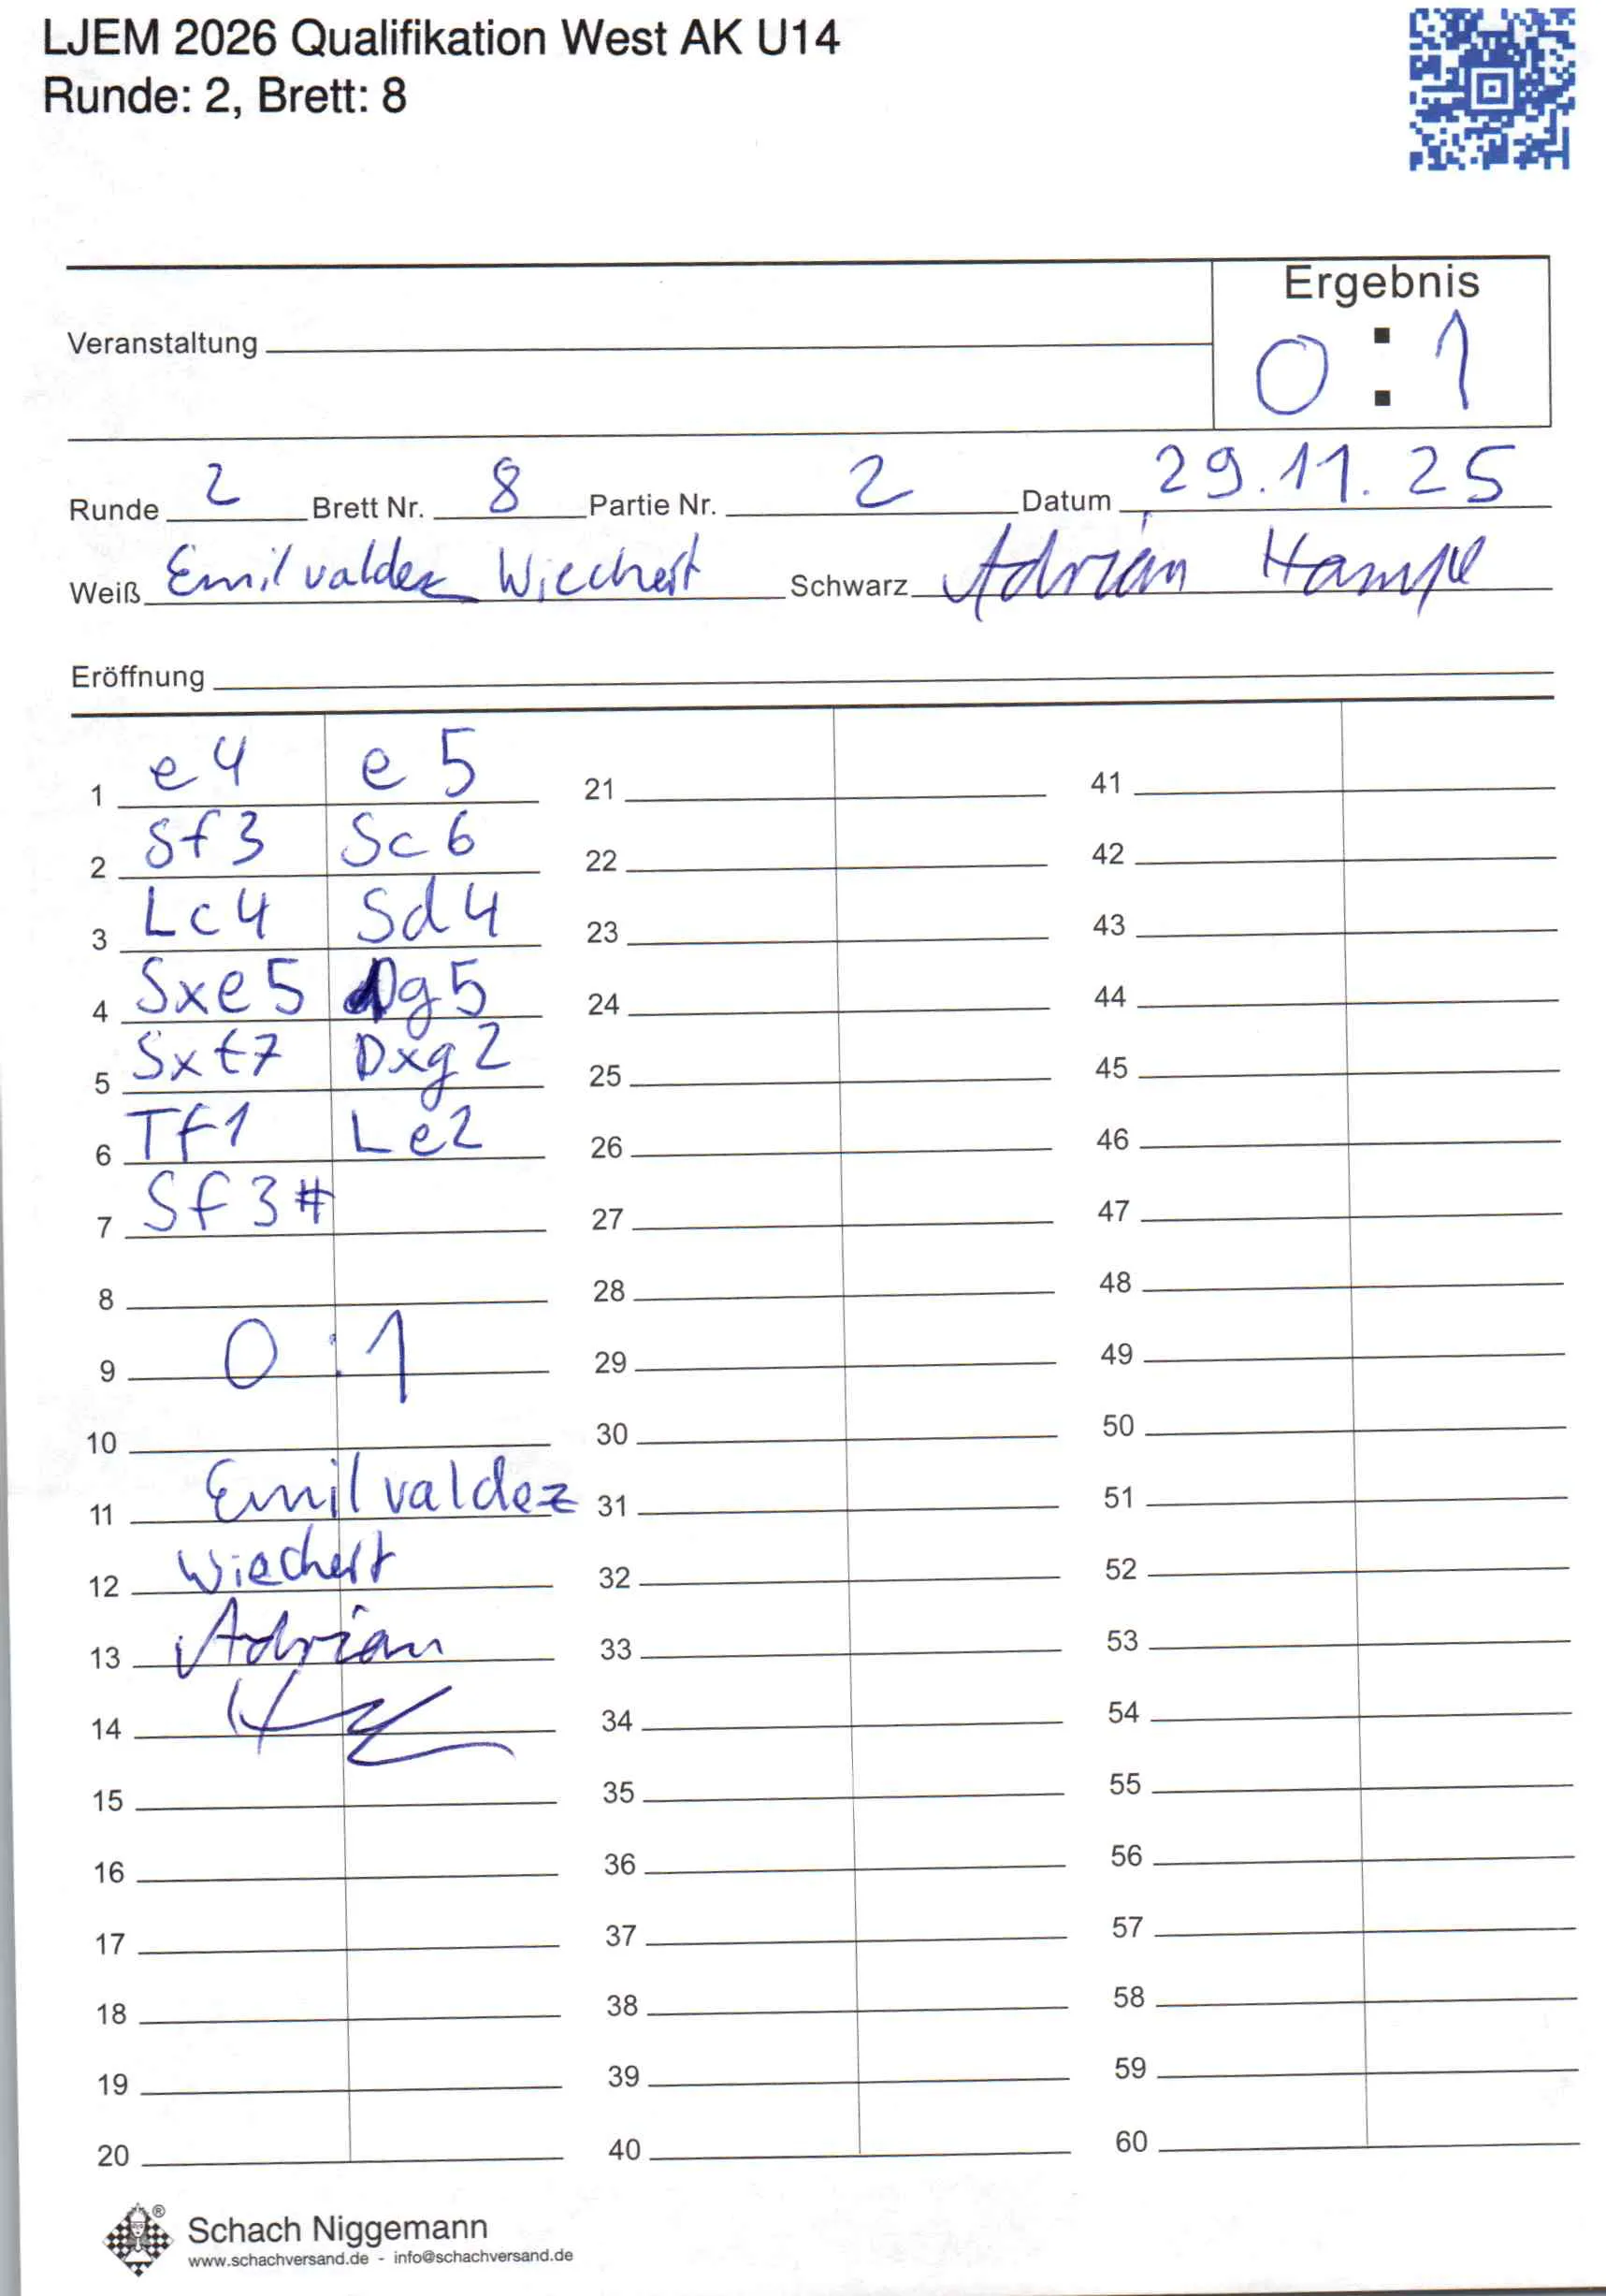 LJEM 2026 Qualifikation West AK U14
Runde: 2, Brett: 8
Ergebnis
Veranstaltung
0 : 1
Runde 2 Brett Nr. 8 Partie Nr. 2 Datum 29.11.25
Weiß Emil valdez Wiechert Schwarz Adrian Hampe
Eröffnung
1 e4 e5 21 41
2 Sf3 Sc6 22 42
3 Lc4 Sd4 23 43
4 Sxe5 Dg5 24 44
5 Sxf7 Dxg2 25 45
6 Tf1 Le2 26 46
7 Sf3# 27 47
8 28 48
9 0 : 1 29 49
10 30 50
11 Emil valdez 31 51
12 Wiechert 32 52
13 Adrian 33 53
14 34 54
15 35 55
16 36 56
17 37 57
18 38 58
19 39 59
20 40 60
® Schach Niggemann
www.schachversand.de - info@schachversand.de